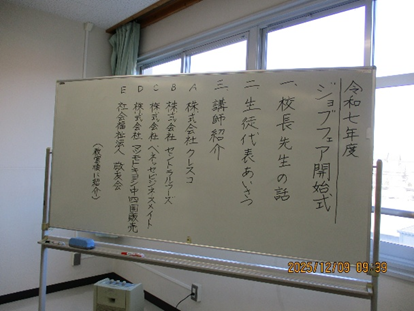 令和七年度
ジョブフェア開始式
一、校長先生の話
二、生徒代表あいさつ
三、講師紹介
A 株式会社クレスコ
B 株式会社セントラルフーズ
C 株式会社ベネッセビジネスメイト
D 株式会社 中四国販売
E 社会福祉法人 敬友会
(教室後に紹介)
2025/12/09 09:38